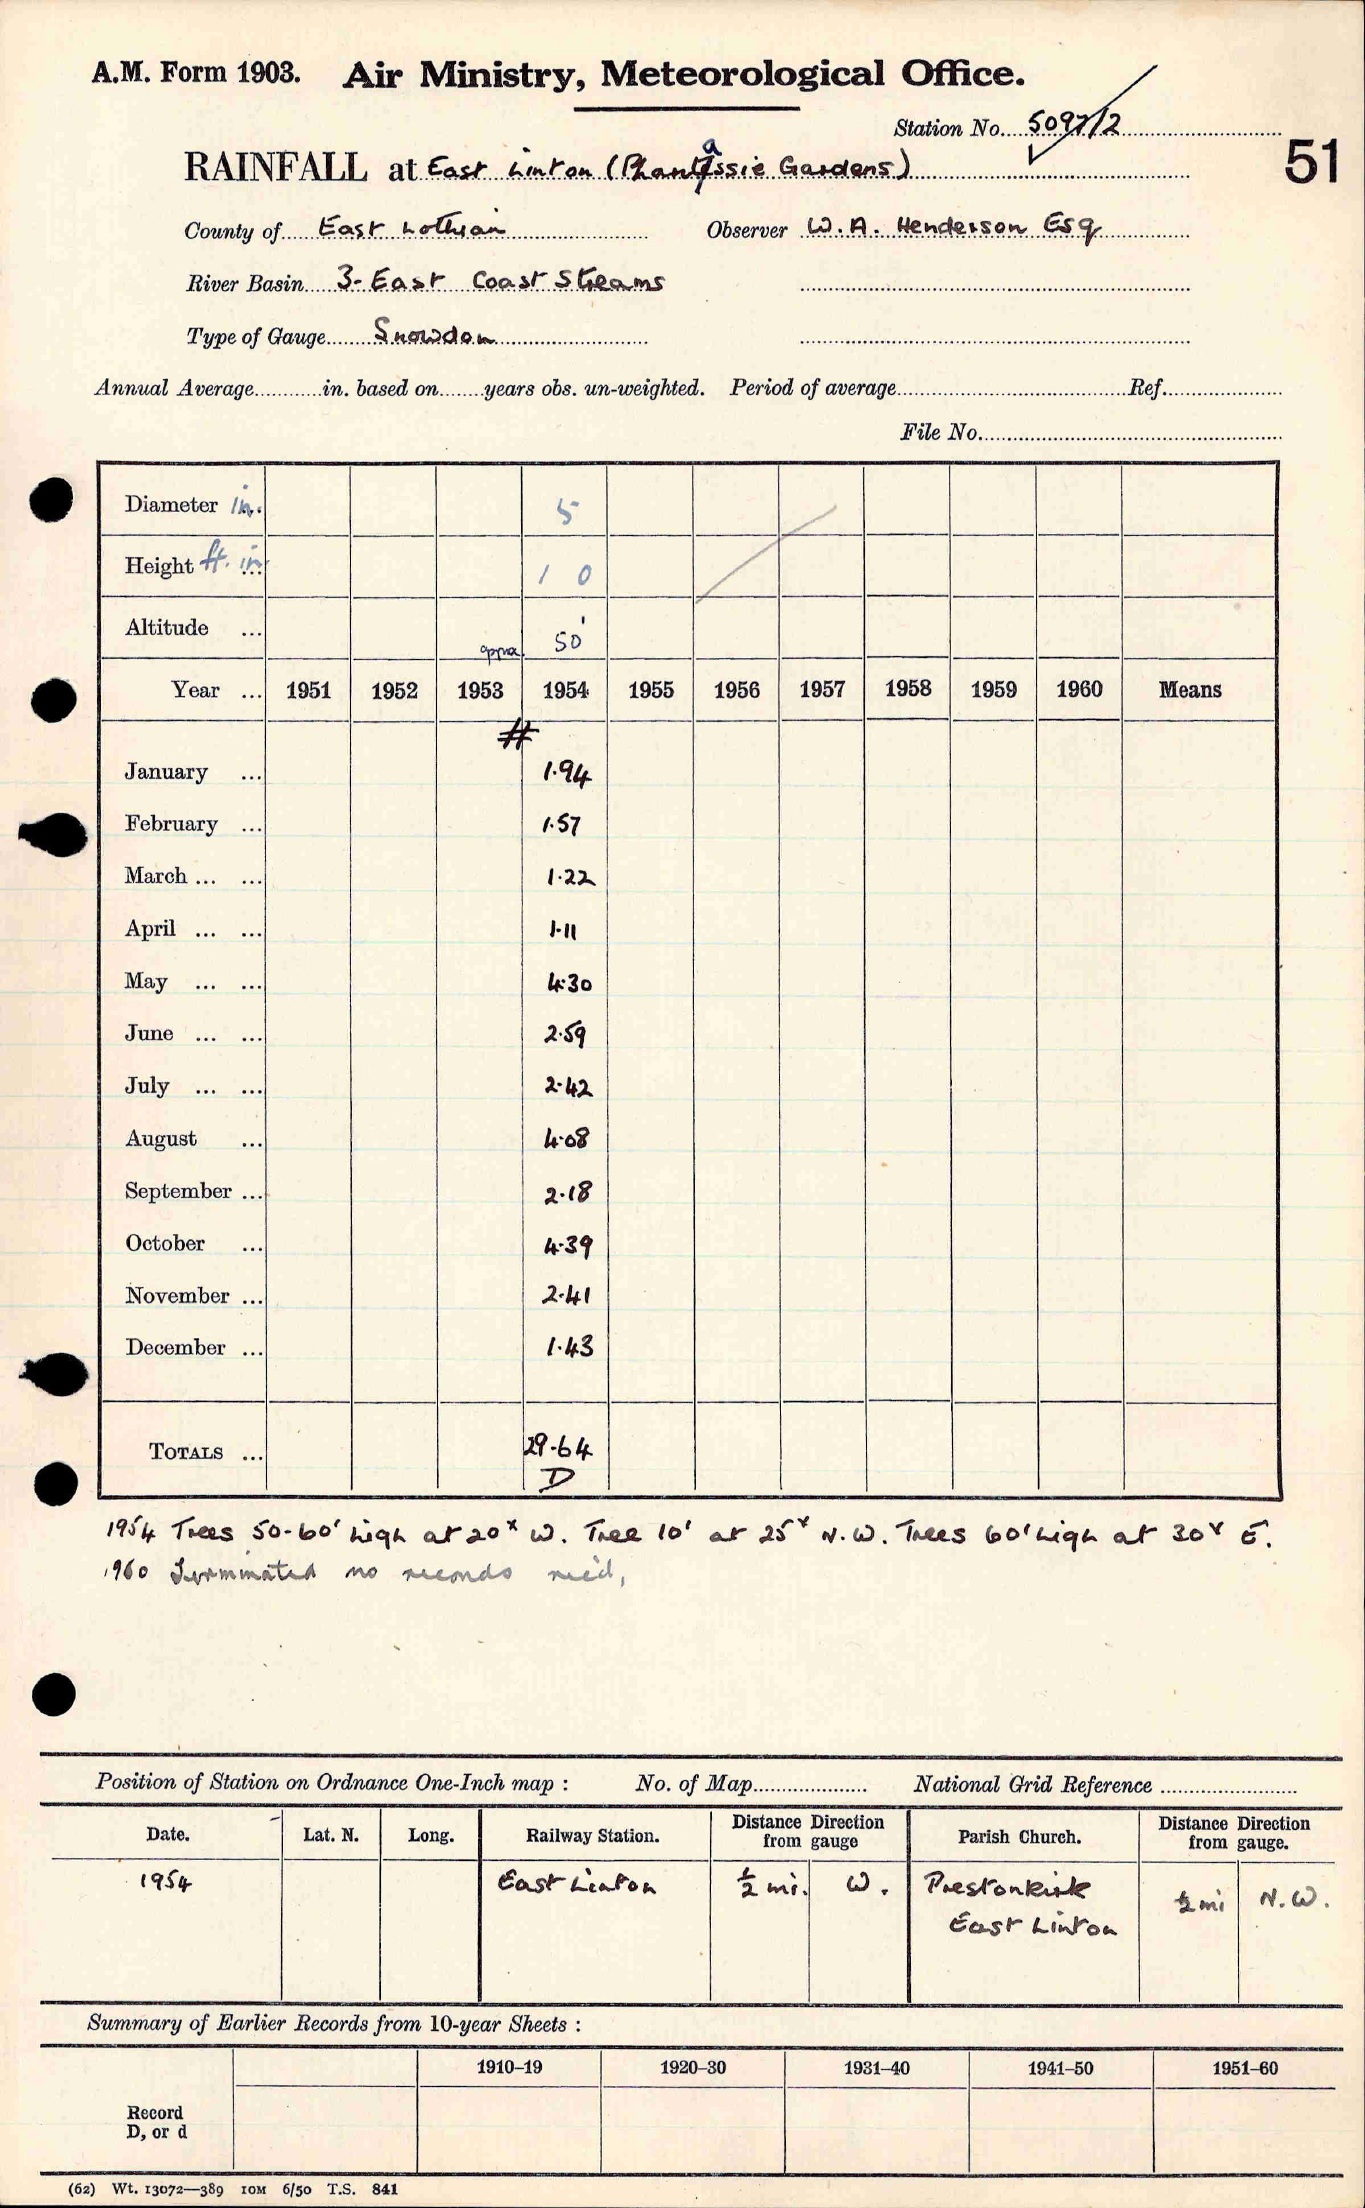 A.M. Form 1903. Air Ministry, Meteorological Office.
Station No. 5097/2
51
RAINFALL at East Linton (Phantassie Gardens)
County of East Lothian Observer W. A. Henderson Esq
River Basin 3-East Coast Streams
Type of Gauge Snowdon
Annual Average in. based on years obs. un-weighted. Period of average Ref.
File No.
Diameter in. 5
Height ft. in. 1 0
Altitude ... approx. 50'
Year ... 1951 1952 1953 1954 1955 1956 1957 1958 1959 1960 Means
#
January ... 1.94
February ... 1.57
March ... ... 1.22
April ... ... 1.11
May ... ... 4.30
June ... ... 2.59
July ... ... 2.42
August ... 4.08
September ... 2.18
October ... 4.39
November ... 2.41
December ... 1.43
TOTALS ... 29.64
D
1954 Trees 50-60' high at 20x W. Tree 10' at 25x N.W. Trees 60' high at 30x E.
1960 Terminated no records rec'd,
Position of Station on Ordnance One-Inch map : No. of Map National Grid Reference
Date. Lat. N. Long. Railway Station. Distance from gauge Direction Parish Church. Distance from gauge. Direction
1954 East Linton ½ mi. W. Prestonkirk ½ mi N.W.
East Linton
Summary of Earlier Records from 10-year Sheets :
1910–19 1920–30 1931–40 1941–50 1951–60
Record
D, or d
(62) Wt. 13072—389 10M 6/50 T.S. 841